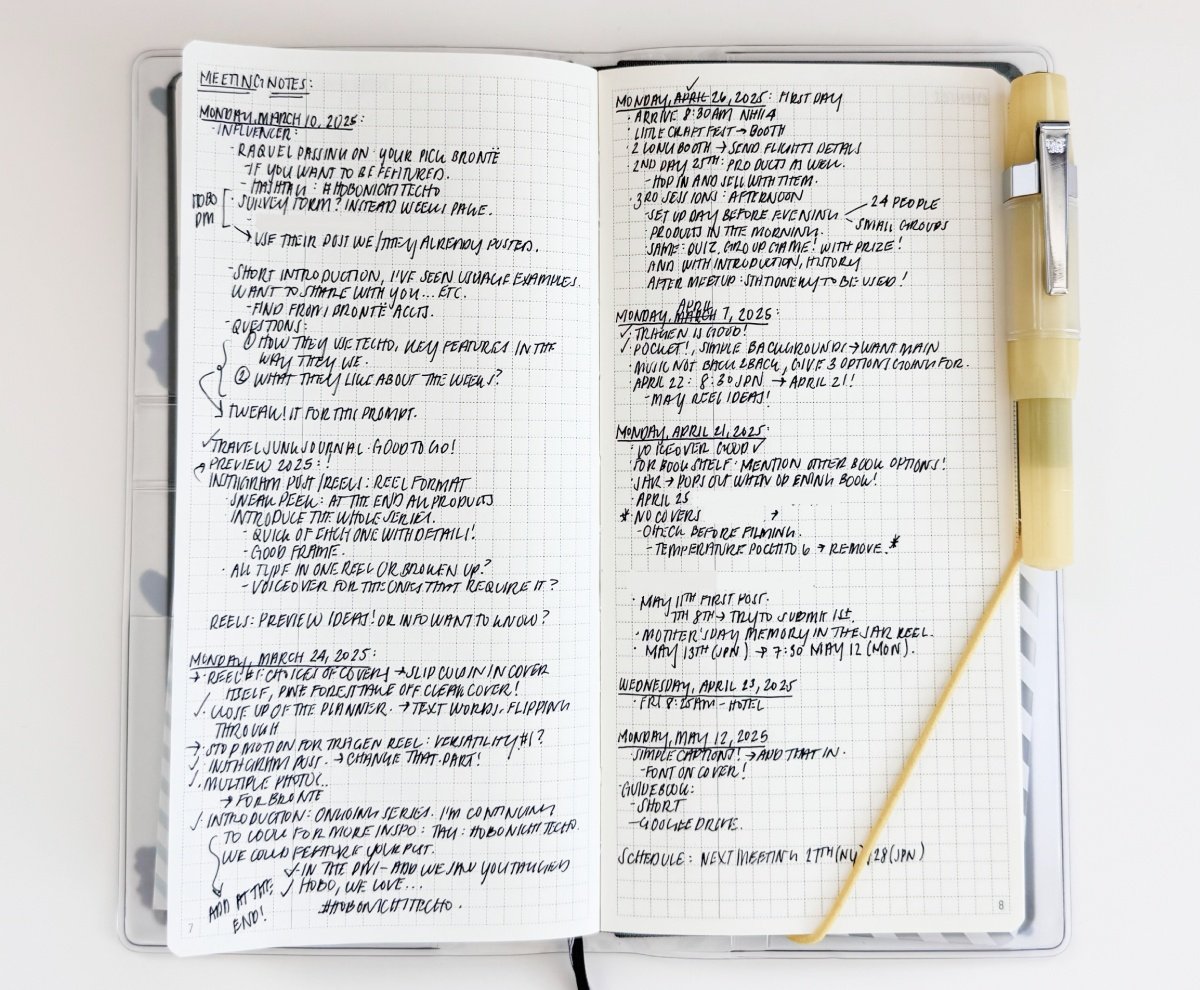 MEETING NOTES:
MONDAY, MARCH 10, 2025:
- INFLUENCER:
- RAQUEL PASSING ON YOUR PICK BRONTË
- IF YOU WANT TO BE FEATURED.
- HASHTAG: #HOBONICHITECHO
- SURVEY FORM? INSTEAD WEEKS PAGE.
HOBO
DM
USE THEIR POST WE/THEY ALREADY POSTED.
- SHORT INTRODUCTION, I'VE SEEN USUAGE EXAMPLES.
WANT TO SHARE WITH YOU... ETC.
- FIND FROM BRONTË ACCTS.
- QUESTIONS:
① HOW THEY USE TECHO, KEY FEATURES IN THE
WAY THEY USE.
② WHAT THEY LIKE ABOUT THE WEEKS?
TWEAK! IT FOR THIS PROMPT.
✓ TRAVEL JUNK JOURNAL · GOOD TO GO!
PREVIEW 2025:!
INSTAGRAM POST/REELS: REEL FORMAT
- SNEAK PEEK: AT THE END ALL PRODUCTS
INTRODUCE THE WHOLE SERIES.
- QUICK OF EACH ONE WITH DETAIL!
- GOOD FRAME.
· ALL TYPE IN ONE REEL OR BROKEN UP?
- VOICEOVER FOR THE ONES THAT REQUIRE IT?
REELS: PREVIEW IDEAS! OR INFO WANT TO KNOW?
MONDAY, MARCH 24, 2025:
→ REEL #1: CHOICES OF COVERS → SLIP COVER IN COVER
ITSELF, PINE FOREST TAKE OFF CLEAR COVER!
✓ CLOSE UP OF THE PLANNER. → TEXT WORDS, FLIPPING
THROUGH
→ STOP MOTION FOR TRAGEN REEL: VERSATILITY #1?
✓ INSTAGRAM POST. → CHANGE THAT PART!
✓ MULTIPLE PHOTOS..
→ FOR BRONTE
✓ INTRODUCTION: ONGOING SERIES. I'M CONTINUING
TO LOOK FOR MORE INSPO: TAG: #HOBONICHITECHO.
WE COULD FEATURE YOUR POST.
✓ IN THE DM - ADD WE SAW YOU TAGGED
✓ HOBO, WE LOVE...
#HOBONICHITECHO.
ADD AT THE
END!
7
MONDAY, APRIL 26, 2025: FIRST DAY
· ARRIVE 8:30AM NH114
· LITTLE CRAFT FEST → BOOTH
· 2 LONG BOOTH → SEND FLIGHTS DETAILS
2ND DAY 25TH: PRODUCTS AS WELL.
- HOP IN AND SELL WITH THEM.
· 3RD SESSIONS: AFTERNOON
- SET UP DAY BEFORE EVENING
24 PEOPLE
SMALL GROUPS
PRODUCTS IN THE MORNING.
SAME: QUIZ, GROUP GAME! WITH PRIZE!
AND WITH INTRODUCTION, HISTORY
AFTER MEETUP: STATIONERY TO BE USED!
APRIL
MONDAY, MARCH 7, 2025:
✓ TRAGEN IS GOOD!
✓ POCKET!, SIMPLE BACKGROUNDS → WANT MAIN
· MUSIC NOT BACK 2 BACK, GIVE 3 OPTIONS GOING FOR.
· APRIL 22: 8:30 JPN → APRIL 21!
- MAY REEL IDEAS!
MONDAY, APRIL 21, 2025:
· VOICEOVER GOOD ✓
· FOR BOOK SHELF · MENTION OTHER BOOK OPTIONS!
· JAR → POPS OUT WHEN OPENING BOOK!
· APRIL 25
* NO COVERS →
- CHECK BEFORE FILMING.
- TEMPERATURE POCKET 6 → REMOVE. *
· MAY 11TH FIRST POST.
7TH 8TH → TRY TO SUBMIT 1ST.
· MOTHER'S DAY MEMORY IN THE JAR REEL.
· MAY 13TH (JPN) → 7:30 MAY 12 (MON).
WEDNESDAY, APRIL 23, 2025
· FRI 8:25AM - HOTEL
MONDAY, MAY 12, 2025
· SIMPLE CAPTIONS! → ADD THAT IN.
- FONT ON COVER!
· GUIDEBOOK:
- SHORT
- GOOGLE DRIVE.
SCHEDULE: NEXT MEETING 27TH (NY), 28 (JPN)
8